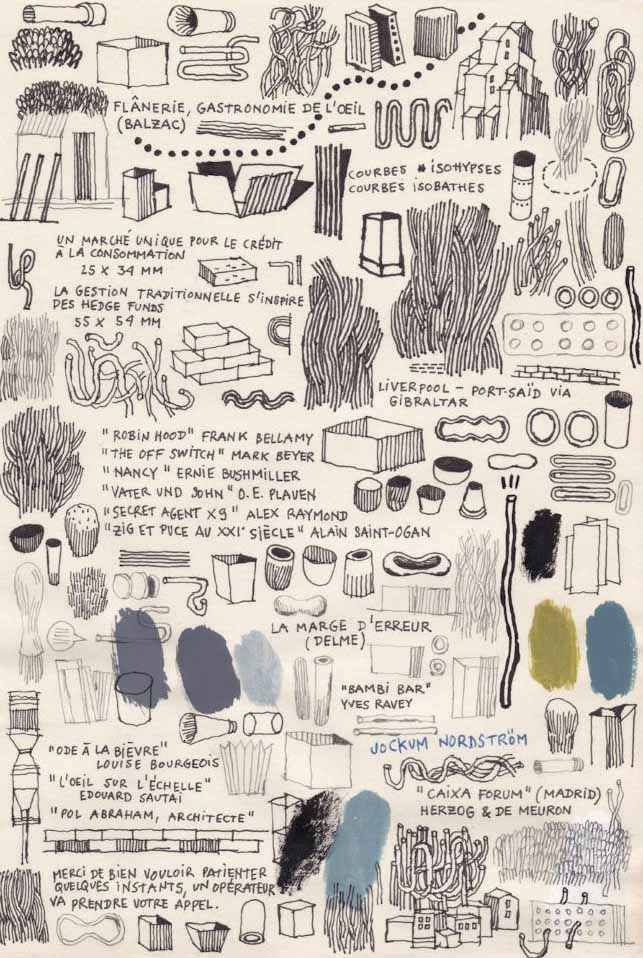 FLÂNERIE, GASTRONOMIE DE L'ŒIL
(BALZAC)
COURBES # ISOHYPSES
COURBES ISOBATHES
UN MARCHÉ UNIQUE POUR LE CRÉDIT
A LA CONSOMMATION
25 X 34 MM
LA GESTION TRADITIONNELLE S'INSPIRE
DES HEDGE FUNDS
55 X 54 MM
LIVERPOOL – PORT-SAÏD VIA
GIBRALTAR
"ROBIN HOOD" FRANK BELLAMY
"THE OFF SWITCH" MARK BEYER
"NANCY" ERNIE BUSHMILLER
"VATER UND SOHN" O.E. PLAUEN
"SECRET AGENT X9" ALEX RAYMOND
"ZIG ET PUCE AU XXIe SIÈCLE" ALAIN SAINT-OGAN
LA MARGE D'ERREUR
(DELME)
"BAMBI BAR"
YVES RAVEY
JOCKUM NORDSTRÖM
"ODE À LA BIÈVRE"
LOUISE BOURGEOIS
"L'OEIL SUR L'ÉCHELLE"
EDOUARD SAUTAI
"POL ABRAHAM, ARCHITECTE"
"CAIXA FORUM" (MADRID)
HERZOG & DE MEURON
MERCI DE BIEN VOULOIR PATIENTER
QUELQUES INSTANTS, UN OPÉRATEUR
VA PRENDRE VOTRE APPEL.